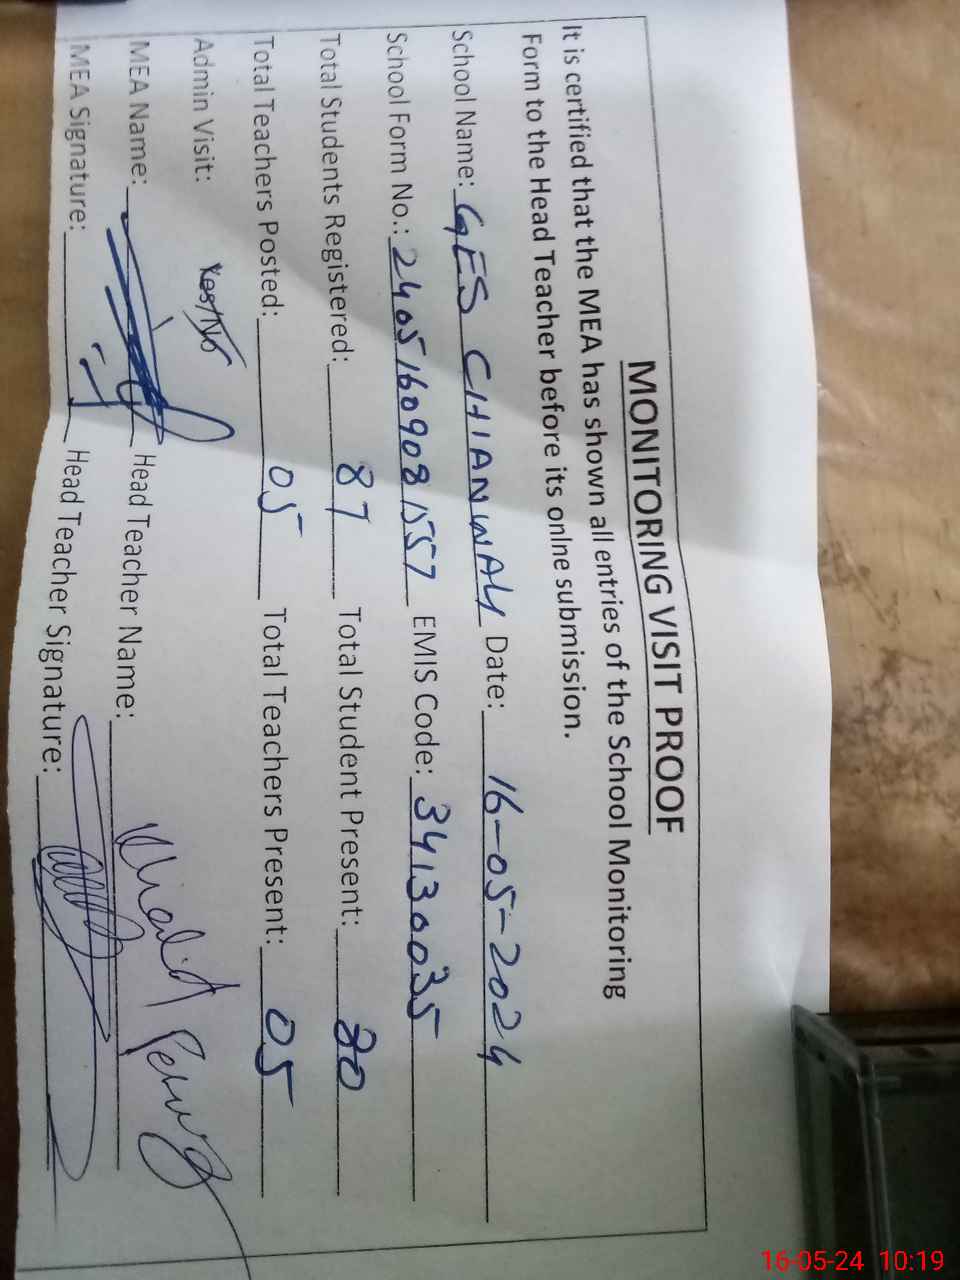 MONITORING VISIT PROOF
It is certified that the MEA has shown all entries of the School Monitoring
Form to the Head Teacher before its onlne submission.
School Name: GES CHIANWALI Date: 16-05-2024
School Form No.: 24051609081557 EMIS Code: 34130035
Total Students Registered: 87 Total Student Present: 80
Total Teachers Posted: 05 Total Teachers Present: 05
Admin Visit: Yes/No
MEA Name: Head Teacher Name: Khalid Pervez
MEA Signature: Head Teacher Signature:
16-05-24 10:19